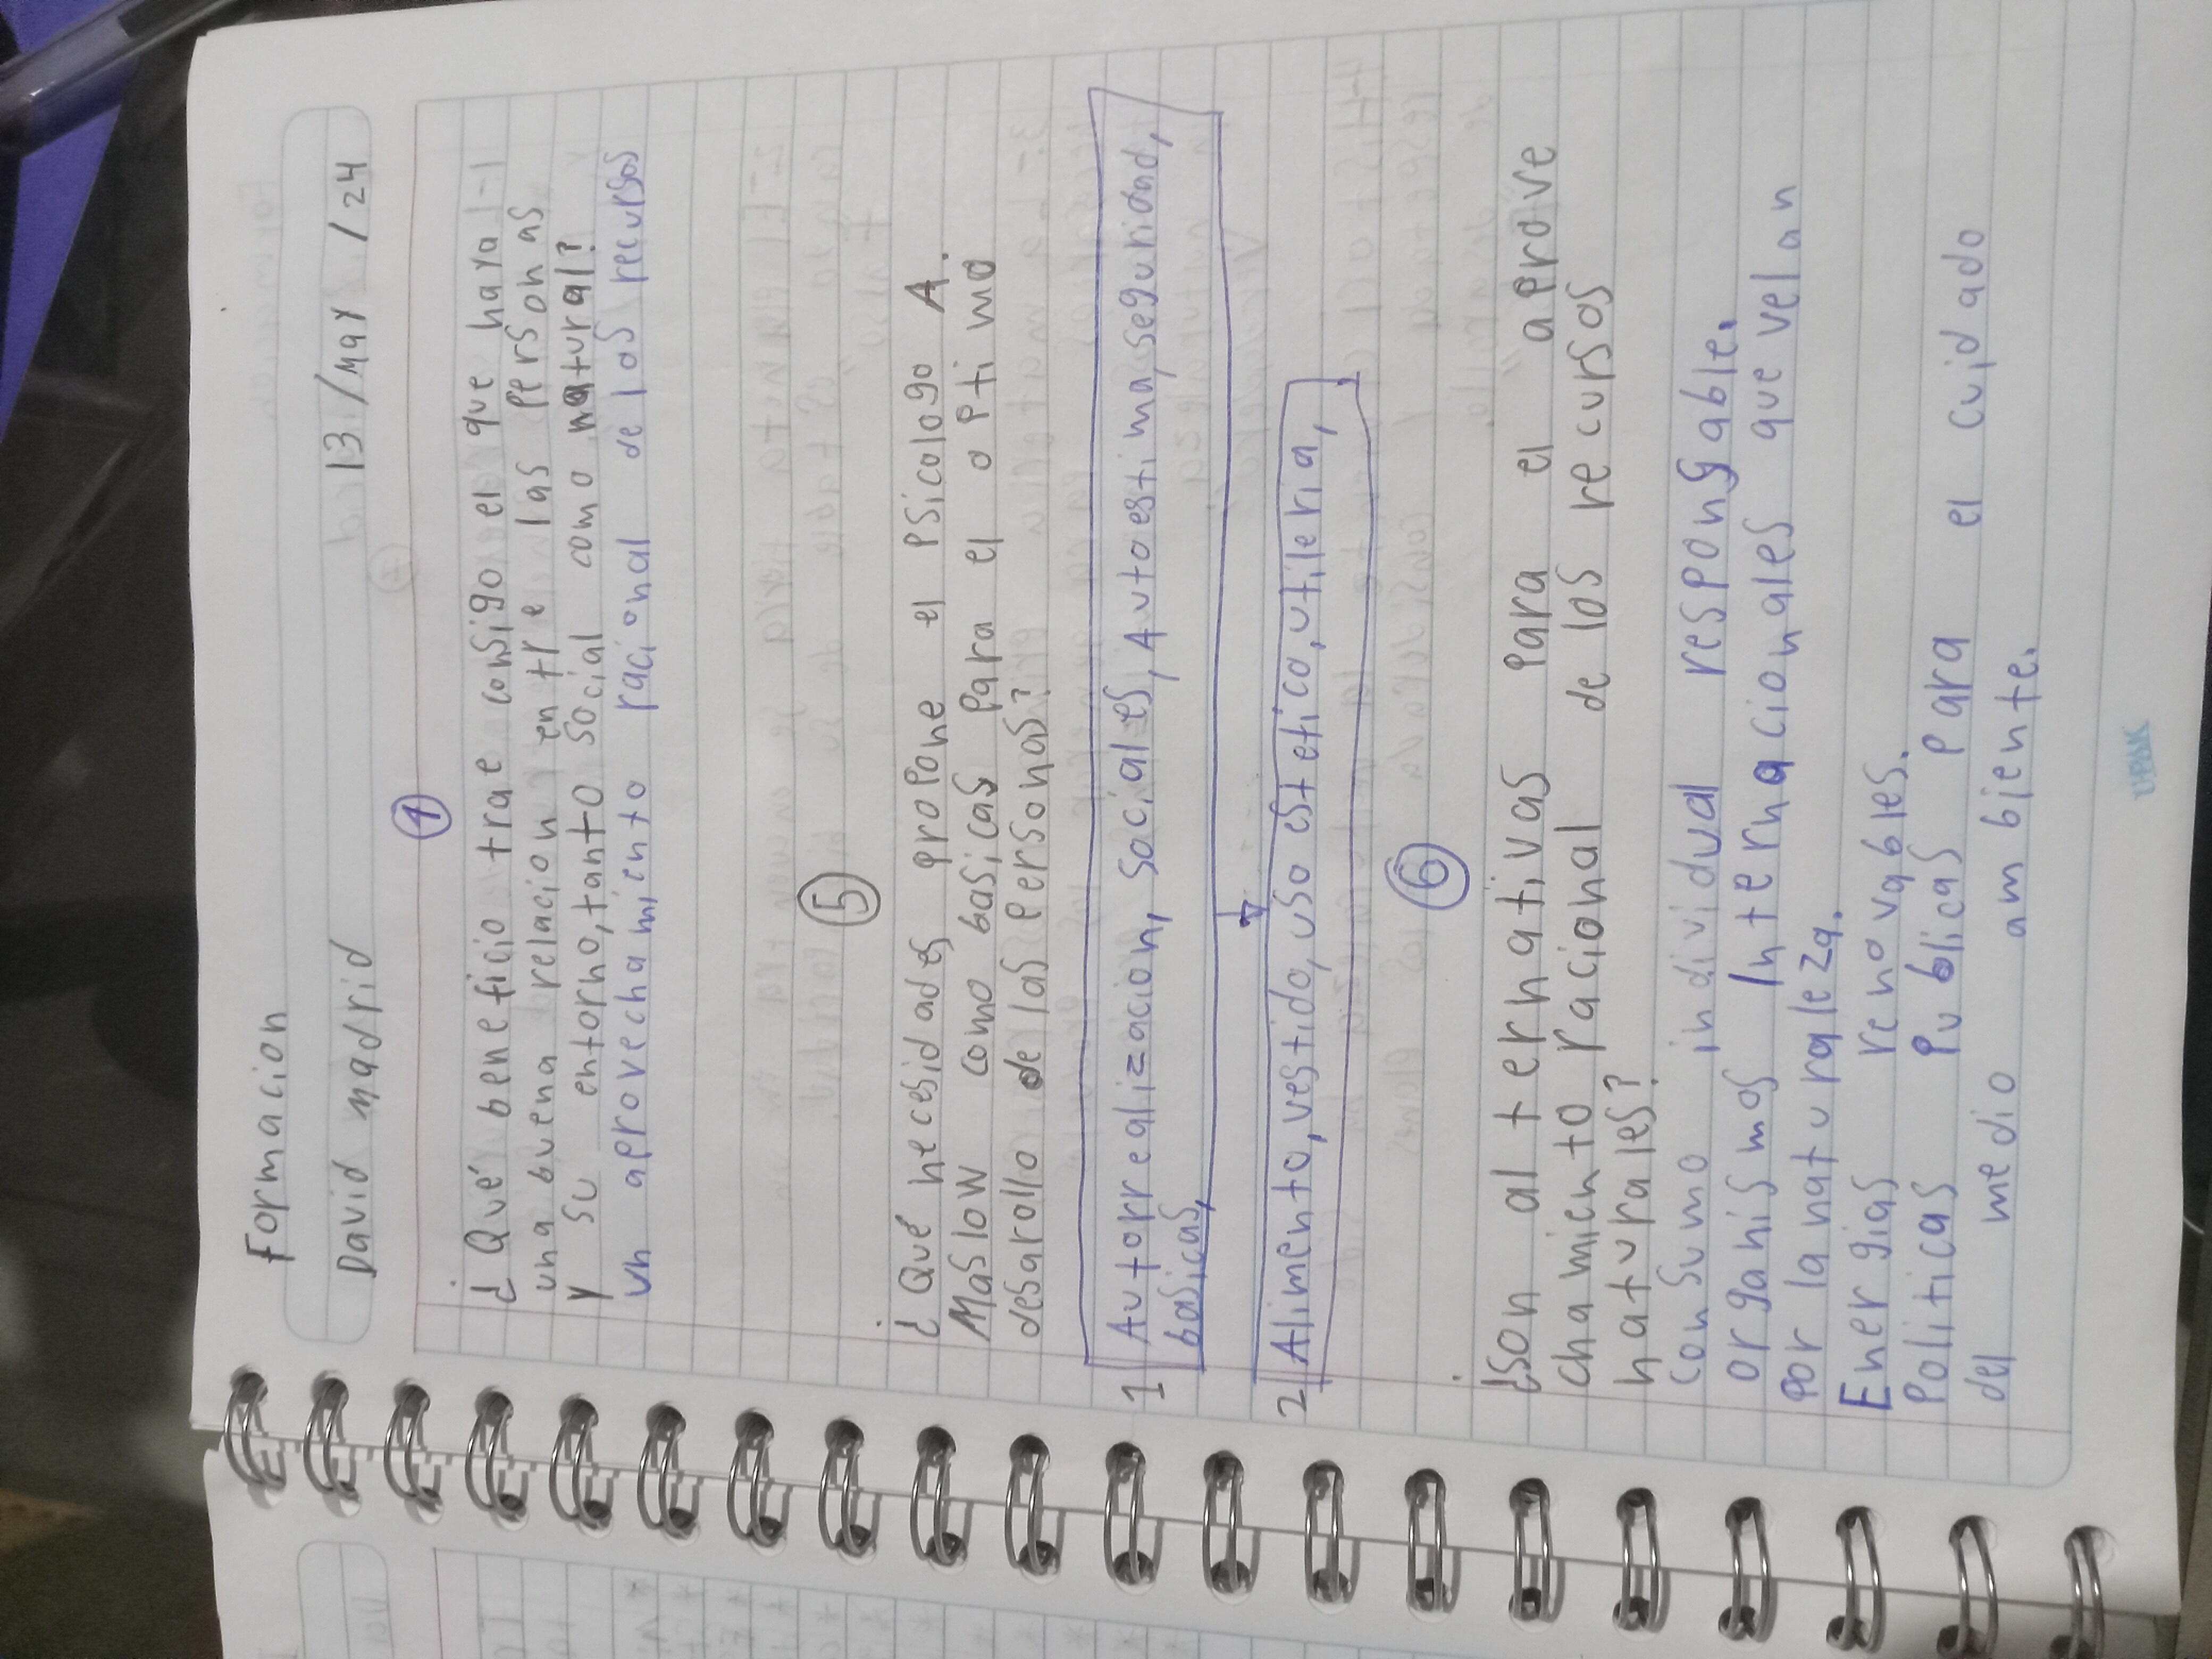 Formacion
David madrid 13/May/24
1
¿Qué beneficio trae consigo el que haya
una buena relacion entre las personas
y su entorno, tanto social como natural?
un aprovechamiento racional de los recursos
5
¿Qué necesidades propone el Psicologo A.
Maslow como basicas para el optimo
desarollo de las personas?
1 Autorrealizacion, sociales, Autoestima, seguridad,
basicas,
2 Alimento, vestido, uso estetico, utileria,
6
¿Son alternativas para el aprove
chamiento racional de los recursos
naturales?
consumo individual responsable.
organismos Internacionales que velan
por la naturaleza.
Energias renovables.
Politicas Publicas para el cuidado
del medio ambiente.